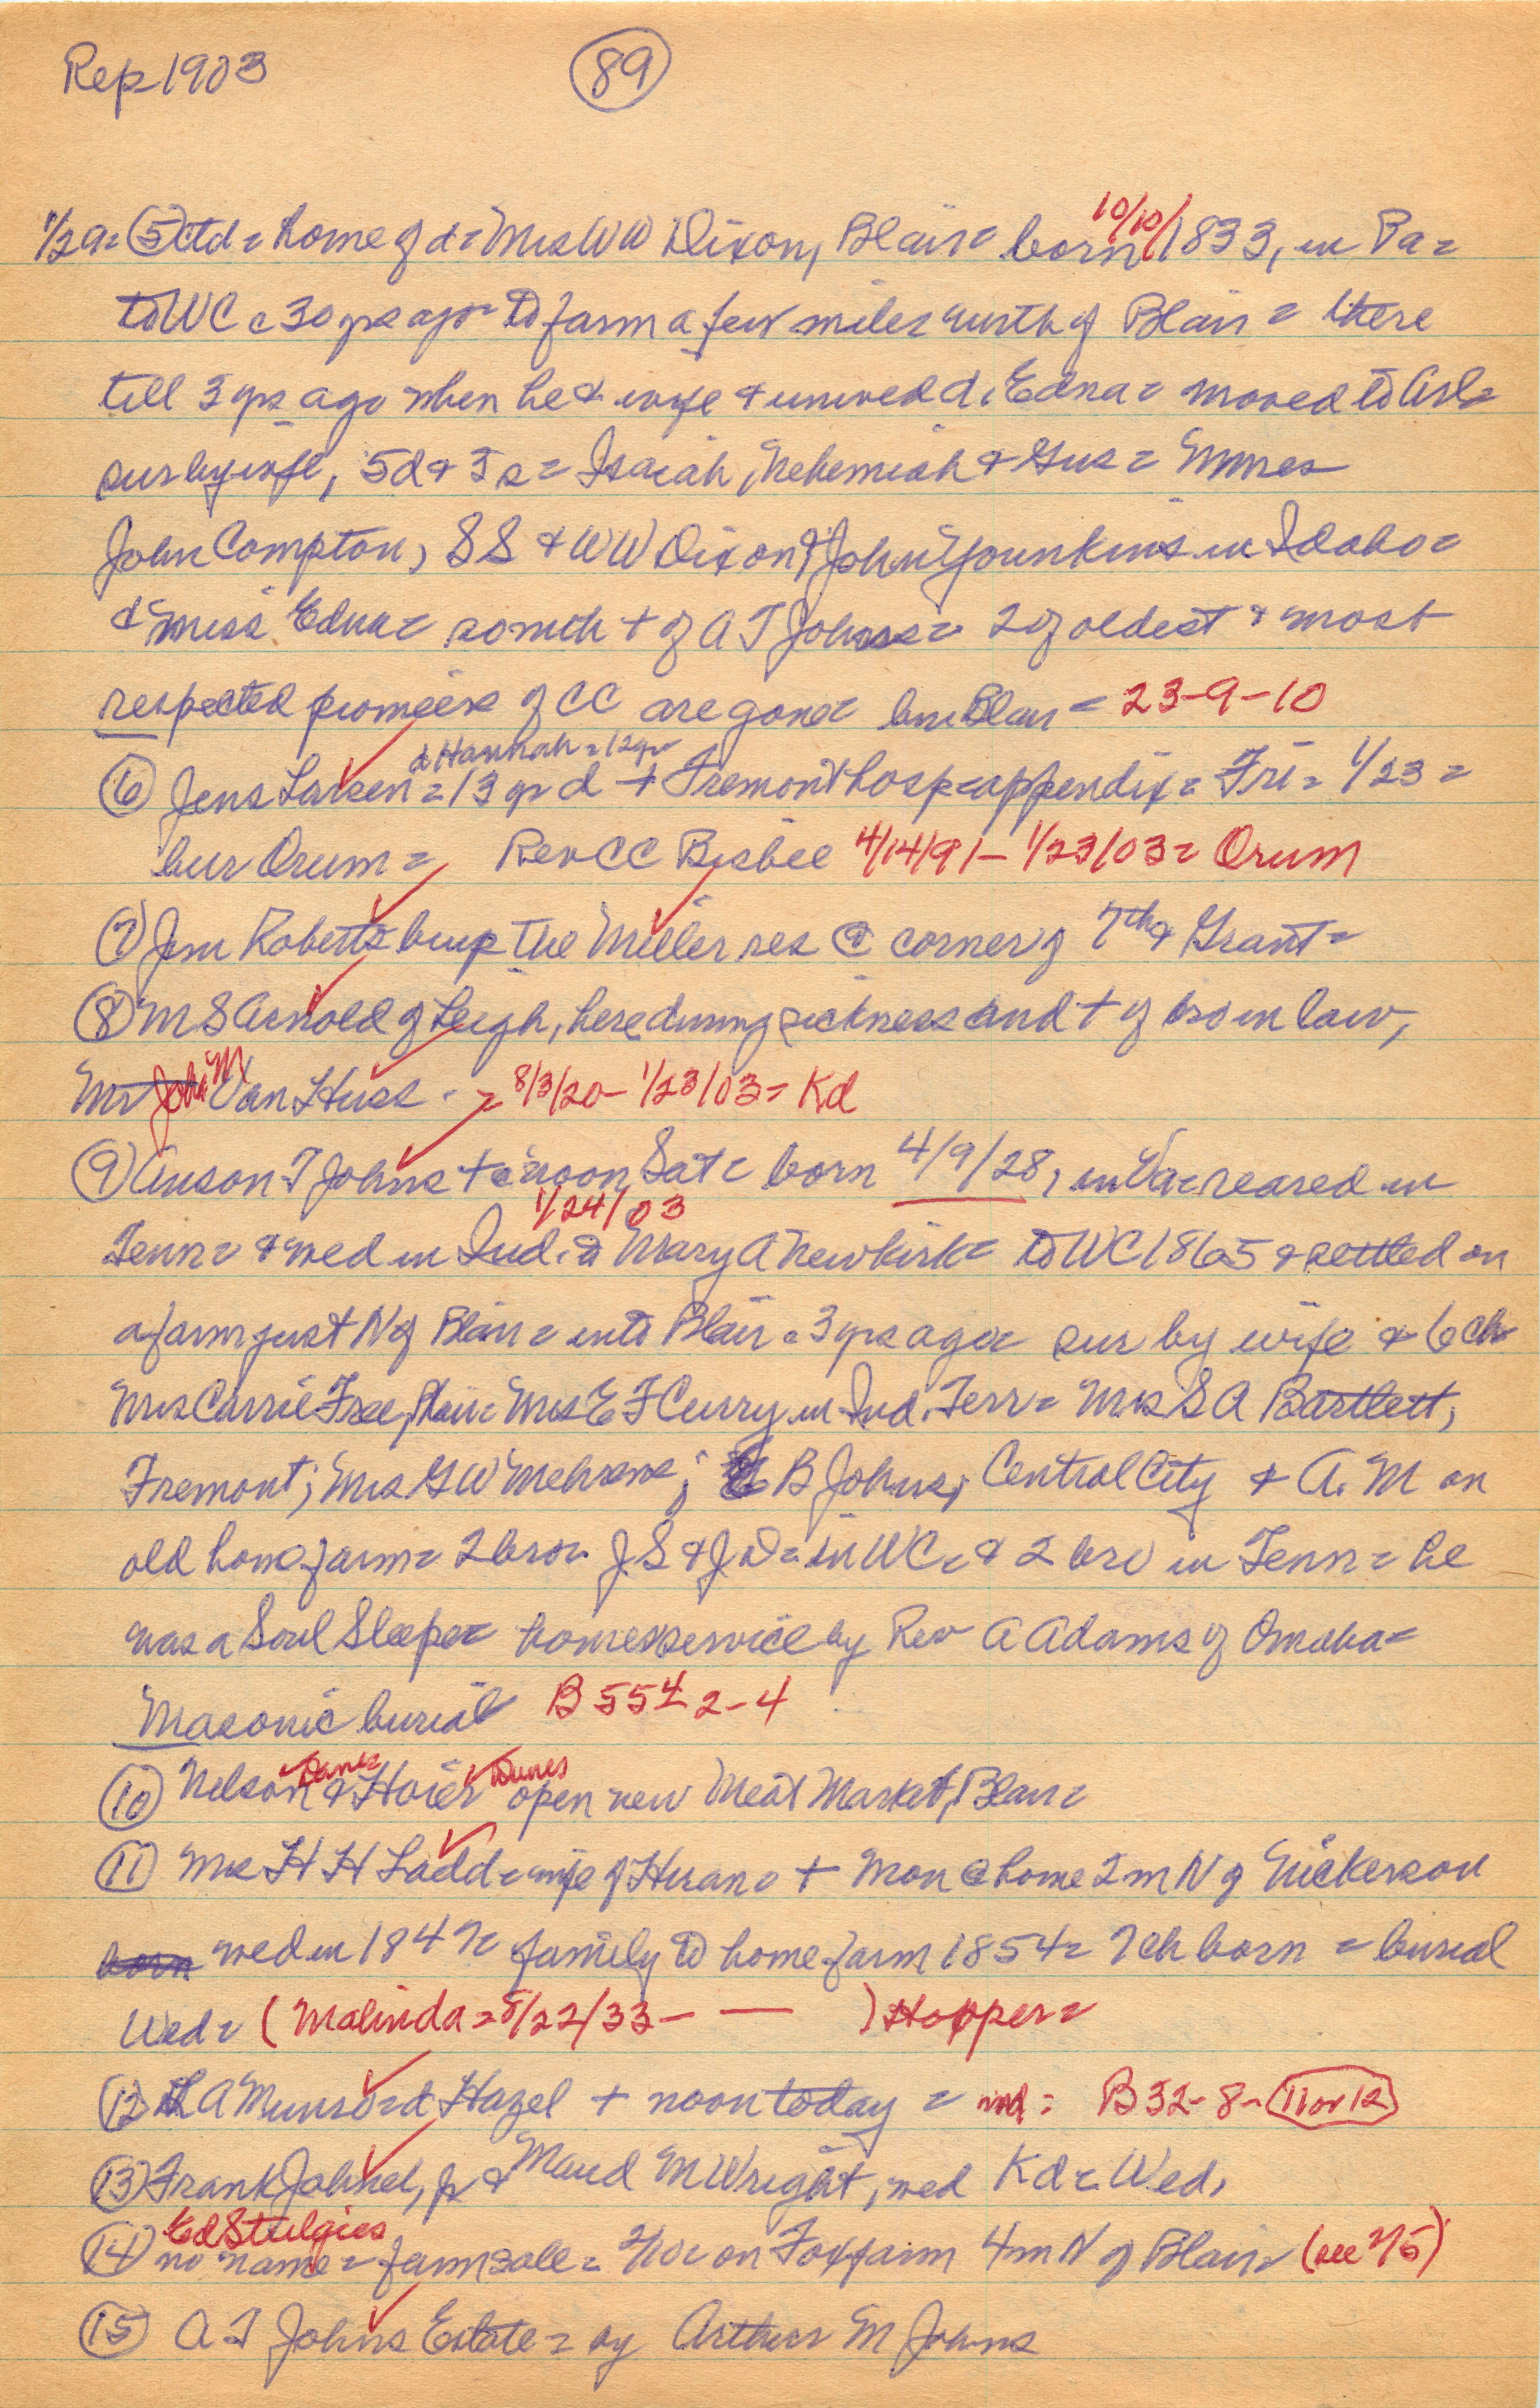 Rep 1903
89
10/10/
1/29 = (5) Ctd = home of d = Mrs WW Dixon, Blair = born 1833, in Pa =
to WC c 30 yrs ago = to farm a few miles north of Blair = there
till 3 yrs ago when he & wife & unwed d, Edna = moved to
sur by wife, 5d & 3s = Isaiah, Nehemiah & Gus = Mmes
John Compton, SS & WW Dixon & John Younkins in Idaho =
& Miss Edna = + of A T Johns = 2 of oldest & most
respected pioneers of CC are gone = bur Blair = 23-9-10
d Hannah = 12 yr
(6) Jens Larsen = 13 yr d + Fremont hosp = appendix = Fri = 1/23 =
bur Orum = Rev CC Bisbee 4/14/91 - 1/23/03 = Orum
(7) Jim Roberts buys the Miller res @ corner of 7th & Grant =
(8) M S Arnold of Leigh, here during sickness and + of bro in law,
Mr John M Van Huss = 8/3/20 - 1/23/03 = Kd
(9) Anson T Johns + c noon Sat = born 4/9/28, in Va = reared in
1/24/03
Tenn = & wed in Ind. = Mary A Newkirk = to WC 1865 & settled on
a farm just N of Blair = into Blair c 3 yrs ago = sur by wife & 6 ch
Mrs Carrie Free, Blair = Mrs E F Curry in Ind. Terr = Mrs S A Bartlett,
Fremont; Mrs GW Mehrens; B Johns, Central City & A. M on
old home farm = 2 bro = J.S & J D = in WC = & 2 bro in Tenn = he
was a Soul Sleeper = home service by Rev A Adams of Omaha =
Masonic burial B 55 2-4
Danes Danes
(10) Nelson & Hoier open new Meat Market, Blair =
(11) Mrs H H Ladd = wife of Hiran = + Mon @ home 2 m N of Nickerson
born wed in 1847 = family to home farm 1854 = 7 ch born = burial
Wed = (Malinda = 5/22/33 - — ) Hopper =
(12) L A Munson d Hazel + noon today = : B 32 - 8 - 11 or 12
(13) Frank Jahnel, jr & Maud M Wright, wed Kd = Wed,
Ed Stulgies
(14) no name = farm sale = 2/10 = on Fox farm 4 m N of Blair = (see 2/5)
(15) A T Johns Estate = by Arthur M Johns